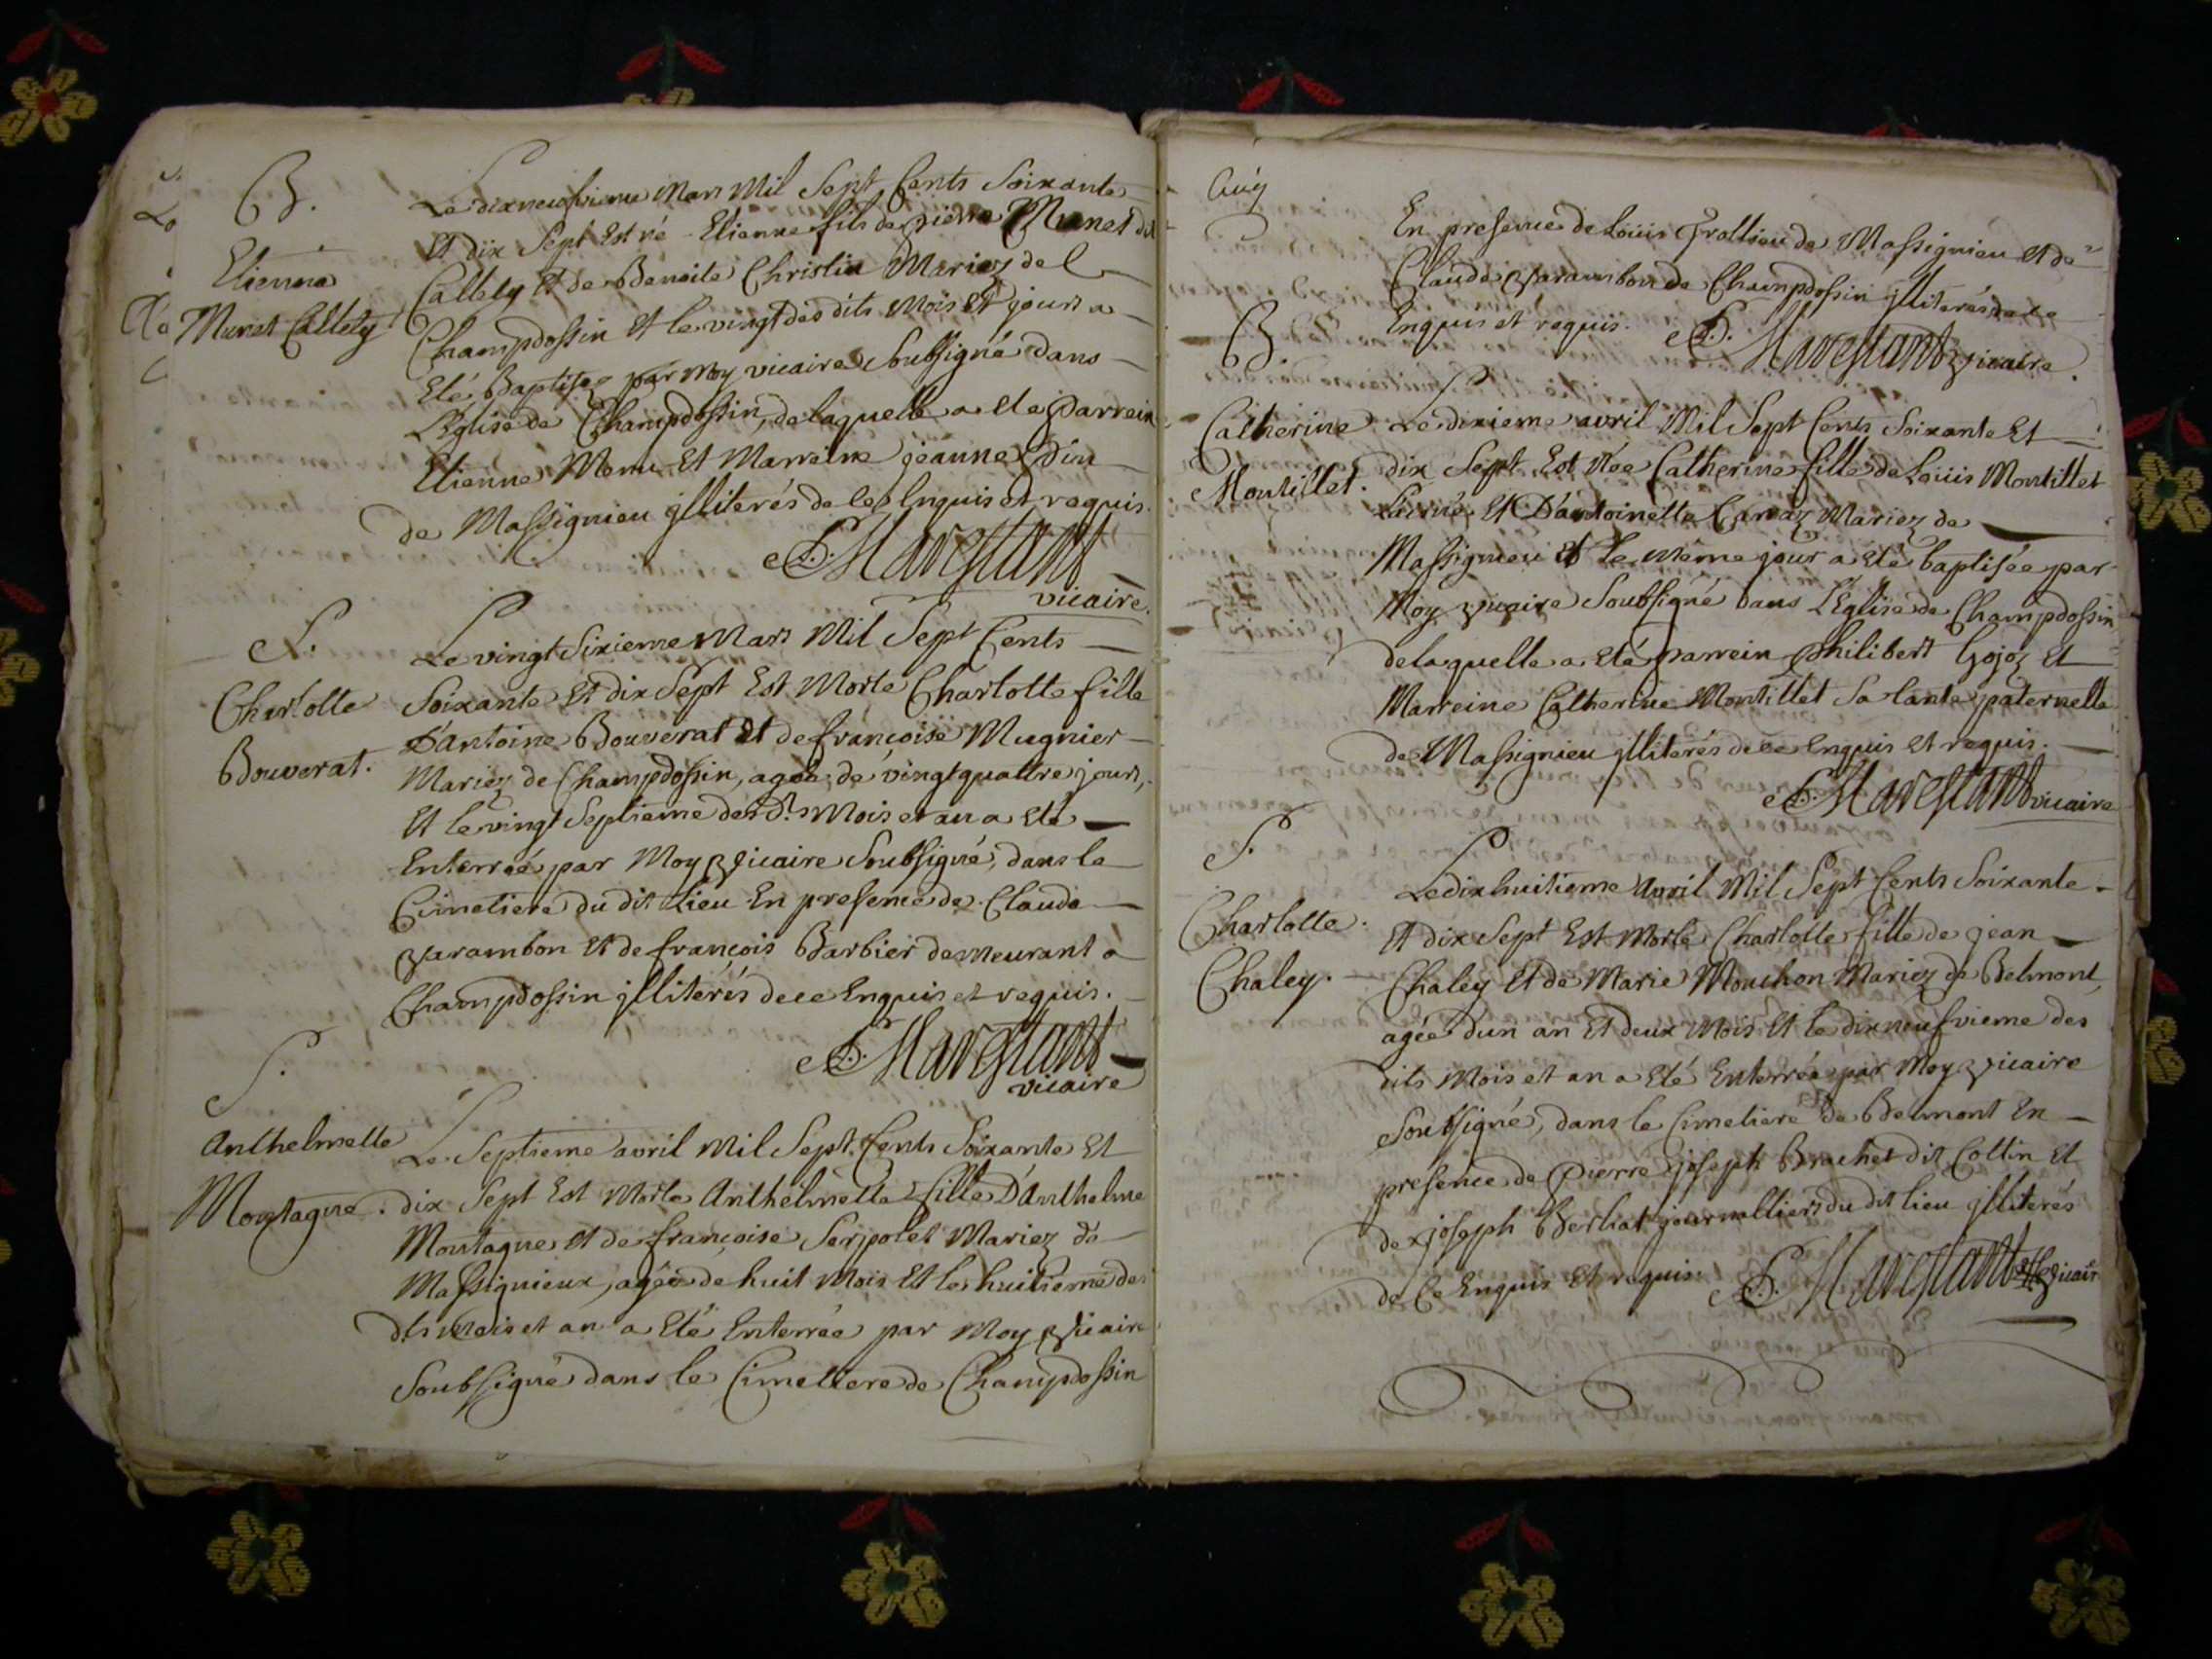 B.
Etienne
Munet Callely
Le dixneufvieme Mars Mil Sept Cents Soixante
Et dix Sept Est né Etienne fils de pierre Munet dit
Callely Et de Benoite Christin Mariez de
Champdossin Et le vingt des dits Mois Et jours a
Eté Baptisez par Moy vicaire Soubsigné dans
L'Eglise de Champdossin, de laquelle a ete parrein
Etienne Menu Et Marreine jeanne Din
de Massignieu jlliterés de ce Enquis et requis.
Marestant
vicaire.
S.
Charlotte
Bouverat.
Le vingt Sixieme Mars Mil Sept Cents
Soixante Et dix Sept Est Morte Charlotte fille
D'antoine Bouverat Et de françoise Mugnier
Mariez de Champdossin, agée de vingtquattre jours,
Et le vingt Septieme des dts Mois et an a Eté
Enterrée par Moy Vicaire Soubsigné, dans le
Cimetiere du dit Lieu En presence de Claude
Varambon Et de françois Barbier demeurant a
Champdossin jllitérés de ce Enquis et requis.
Marestant
vicaire
S.
Anthelmette
Montagne.
Le Septieme avril Mil Sept Cents Soixante Et
dix Sept Est Morte Anthelmette fille D'Anthelme
Montagne Et de françoise Serpolet Mariez de
Massignieux, agée de huit Mois Et le huitieme des
dts Mois et an a Eté Enterrée par Moy Vicaire
Soubsigné dans le Cimetiere de Champdossin
En presence de Loüis Trollieu de Massignieu Et de
Claude Varambon de Champdossin jlliterés de ce
Enquis et requis.
Marestant vicaire.
B.
Catherine
Montillet.
Le dixieme avril Mil Sept Cents Soixante Et
dix Sept Est Née Catherine fille de Loüis Montillet
Et D'antoinette Mariez de
Massignieu Et le même jour a Eté baptisée par
Moy Vicaire Soubsigné dans L'Eglise de Champdossin
de laquelle a eté parrein philibert Gojoz Et
Marreine Catherine Montillet Sa tante paternelle
de Massignieu jlliterés de ce Enquis Et requis.
Marestant vicaire
S.
Charlotte
Chaley.
Le dixhuitieme Avril Mil Sept Cents Soixante
Et dix Sept Est Morte Charlotte fille de jean
Chaley Et de Marie Mouchon Mariez de Belmont,
agée d'un an Et deux Mois Et le dixneufvieme des
dits Mois et an a Eté Enterrée par Moy Vicaire
Soubsigné, dans le Cimetiere de Belmont En
presence de Pierre joseph Brachet dit Collin Et
de joseph Berliat journalliers du dit lieu jlliterés
de Ce Enquis Et requis.
Marestant Vicaire